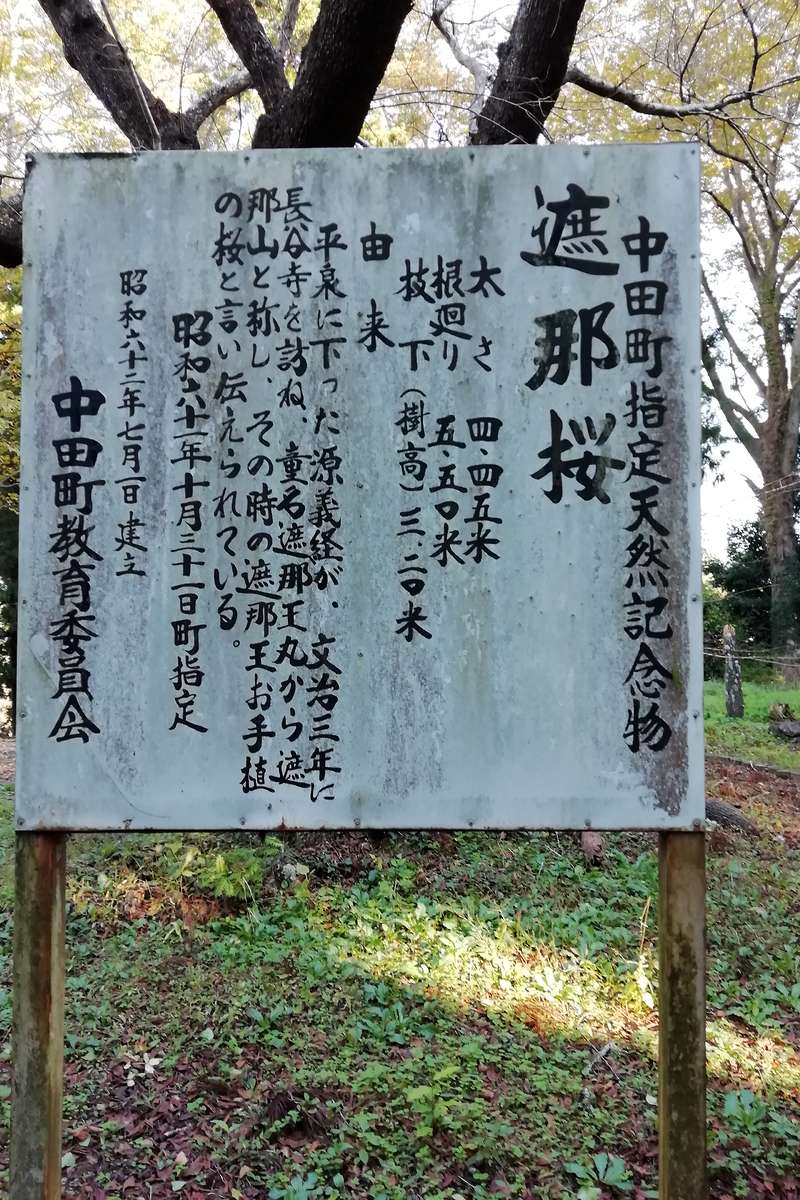 中田町指定天然記念物
遮那桜
太さ 四.四五米
根廻り 五.五〇米
枝下(樹高)三.二〇米
由来
平泉に下った源義経が、文治三年に
長谷寺を訪ね、童名遮那王丸から遮
那山と称し、その時の遮那王お手植
の桜と言い伝えられている。
昭和六十一年十月三十一日町指定
昭和六十二年七月一日建立
中田町教育委員会